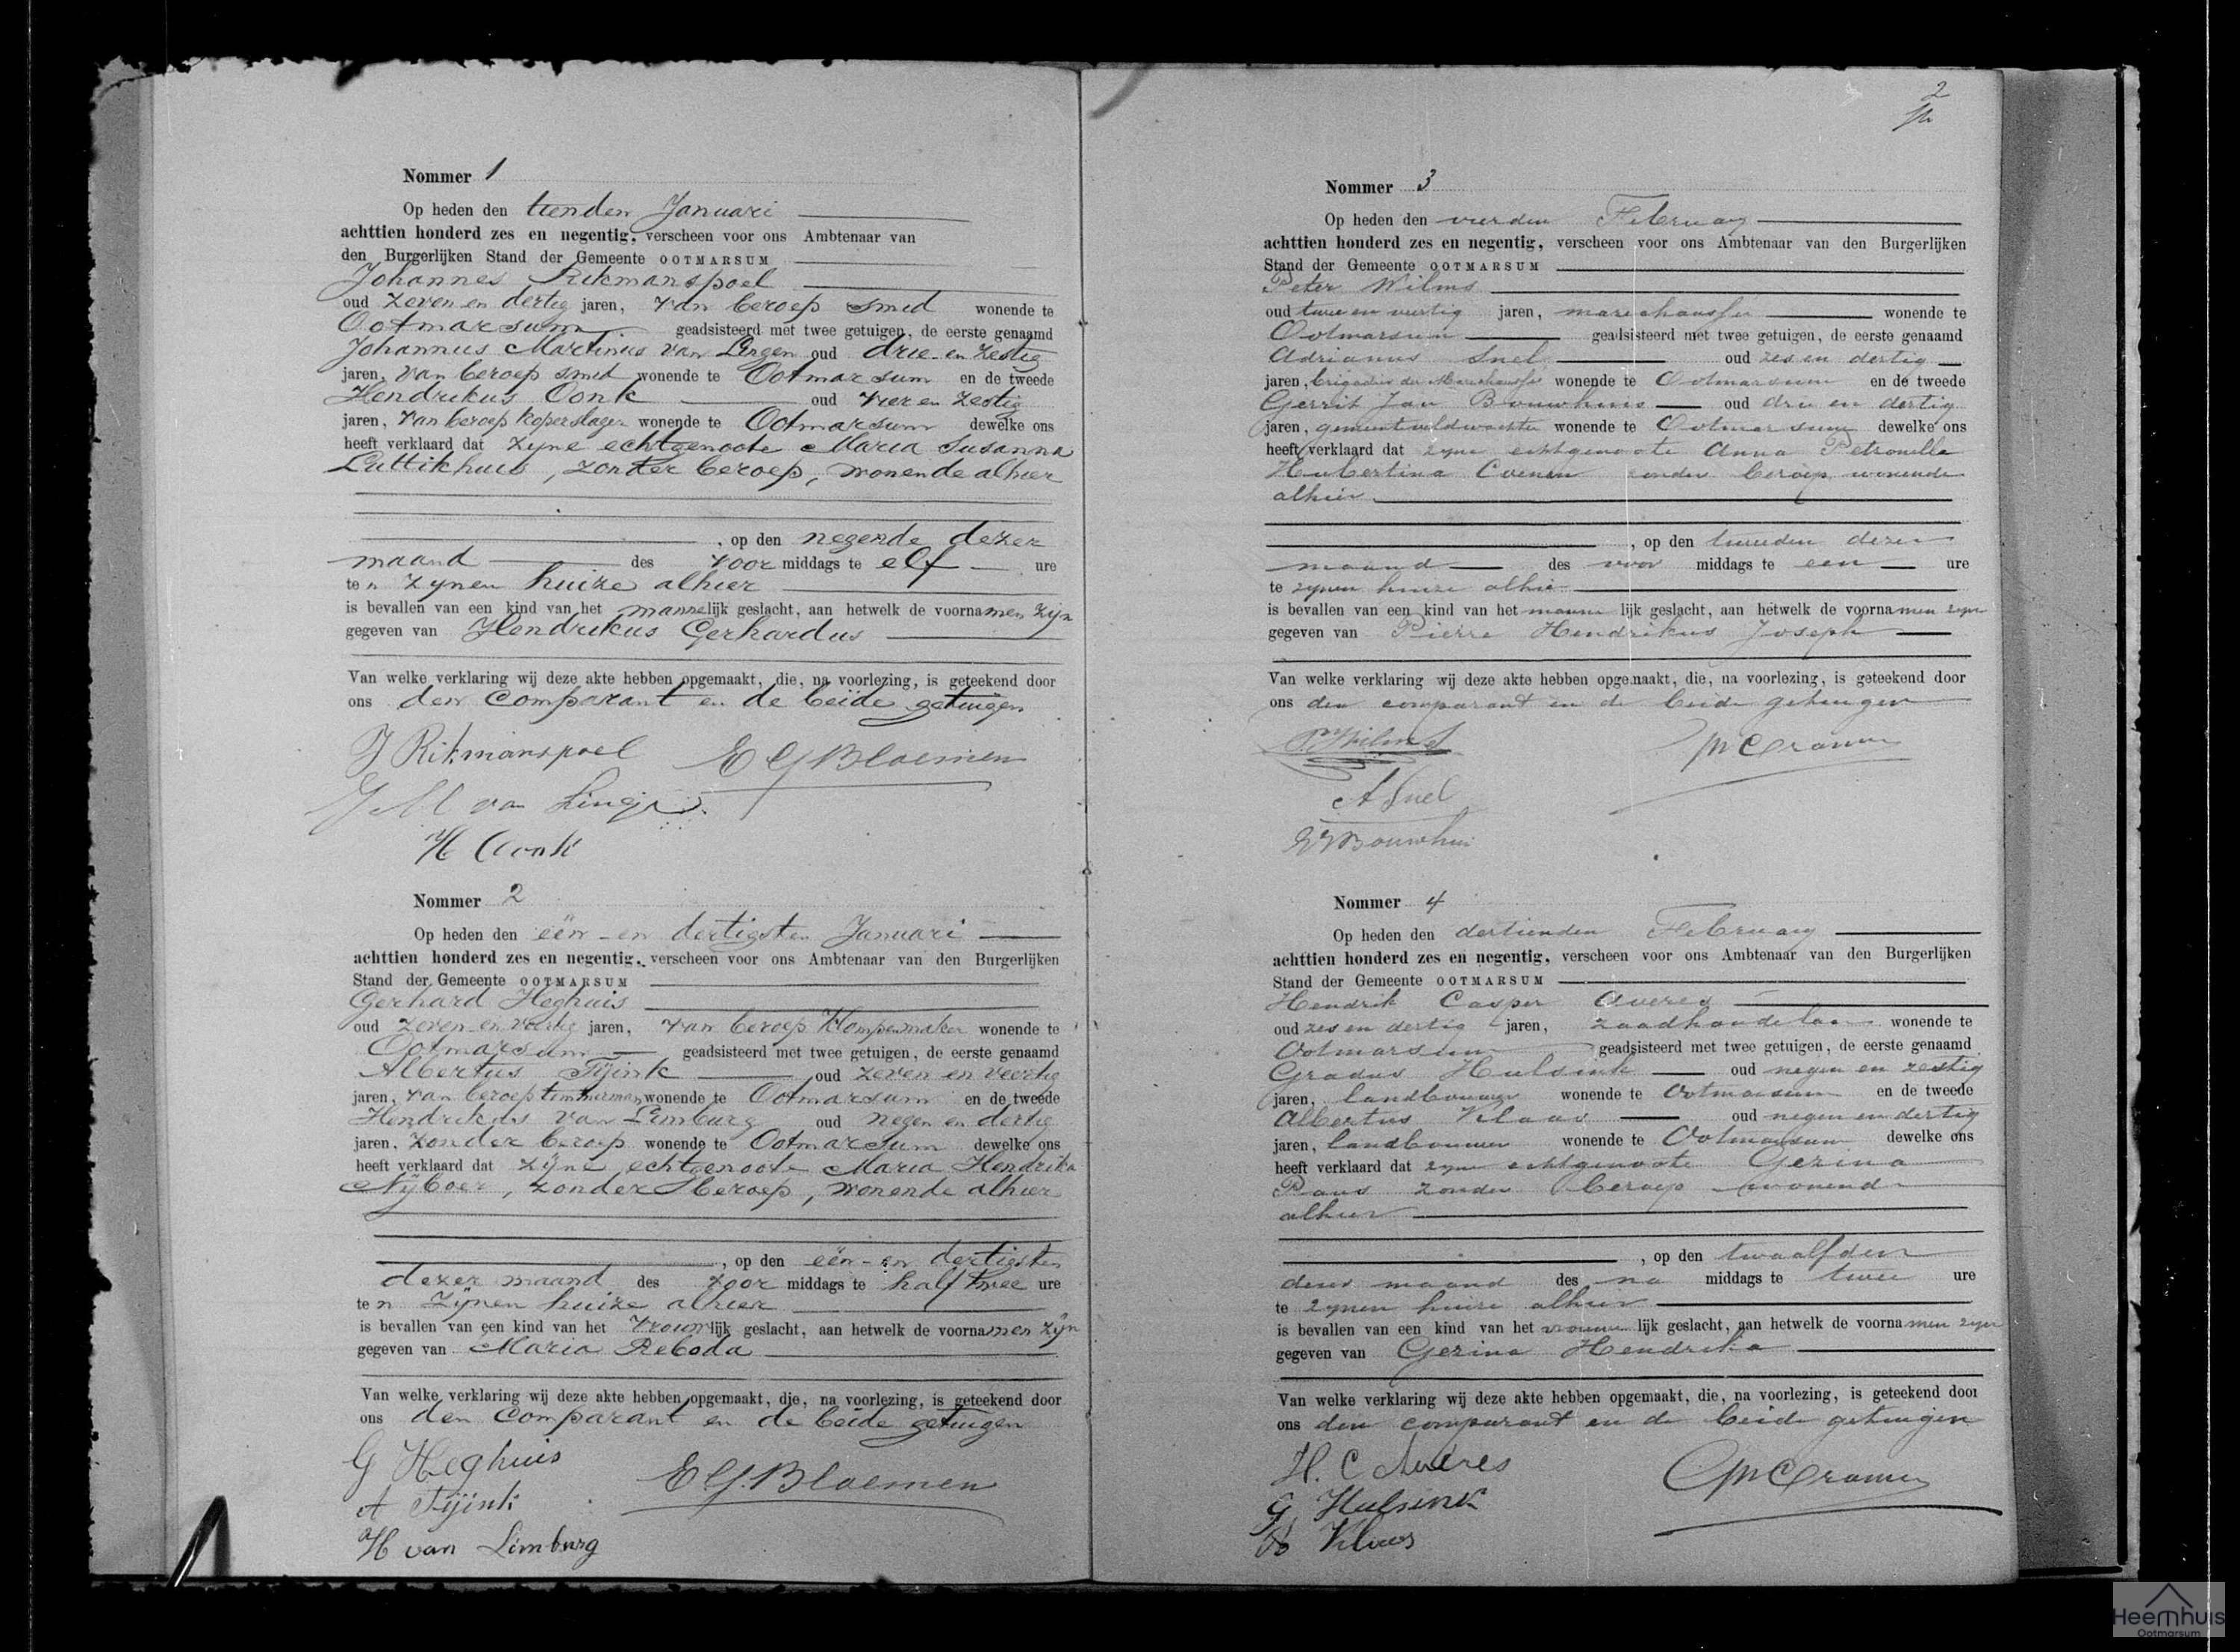 Nommer 1
Op heden den tienden Januari
achttien honderd zes en negentig, verscheen voor ons Ambtenaar van
den Burgerlijken Stand der Gemeente OOTMARSUM
Johannes Rikmanspoel
oud zeven en dertig jaren, van beroep smid wonende te
Ootmarsum geadsisteerd met twee getuigen, de eerste genaamd
Johannus Martinus van Lingen oud drie en zestig
jaren, van beroep smid wonende te Ootmarsum en de tweede
Hendrikus Oonk oud vier en zestig
jaren, van beroep koperslager wonende te Ootmarsum dewelke ons
heeft verklaard dat zijne echtgenoote Maria Susanna
Luttikhuis, zonder beroep, wonende alhier
, op den negende dezer
maand des voor middags te elf ure
te n zijnen huize alhier
is bevallen van een kind van het mannelijk geslacht, aan hetwelk de voornamen zijn
gegeven van Hendrikus Gerhardus
Van welke verklaring wij deze akte hebben opgemaakt, die, na voorlezing, is geteekend door
ons den Comparant en de beide getuigen
J Rikmanspoel EGBloemen
J M van Linge
H Oonk
Nommer 2
Op heden den eën-en dertigsten Januari
achttien honderd zes en negentig, verscheen voor ons Ambtenaar van den Burgerlijken
Stand der Gemeente OOTMARSUM
Gerhard Heghuis
oud zeven en veertig jaren, van beroep klompenmaker wonende te
Ootmarsum geadsisteerd met twee getuigen, de eerste genaamd
Albertus Tijink oud zeven en veertig
jaren, van beroep timmerman wonende te Ootmarsum en de tweede
Hendrikus van Limburg oud negen en dertig
jaren, zonder beroep wonende te Ootmarsum dewelke ons
heeft verklaard dat zijne echtgenoote Maria Hendrika
Nijboer, zonder beroep, wonende alhier
, op den eën-en dertigsten
dezer maand des voor middags te half twee ure
te n zijnen huize alhier
is bevallen van een kind van het vrouwlijk geslacht, aan hetwelk de voornamen zijn
gegeven van Maria Reboda
Van welke verklaring wij deze akte hebben opgemaakt, die, na voorlezing, is geteekend door
ons den Comparant en de beide getuigen
G Heghuis
EG.Bloemen
A Tijink
H van Limburg
2
Nommer 3
Op heden den vierden February
achttien honderd zes en negentig, verscheen voor ons Ambtenaar van den Burgerlijken
Stand der Gemeente OOTMARSUM
Peter Wilms
oud twee en veertig jaren, marechaussee wonende te
Ootmarsum geadsisteerd met twee getuigen, de eerste genaamd
Adrianus Snel oud zes en dertig
jaren, brigadier der Marechaussee wonende te Ootmarsum en de tweede
Gerrit Jan Bouwhuis oud drie en dertig
jaren, gemeenteveldwachter wonende te Ootmarsum dewelke ons
heeft verklaard dat zijne echtgenoote Anna Petronella
Hubertina Coenen zonder beroep wonende
alhier
, op den tweeden dezer
maand des voor middags te een ure
te zijnen huize alhier
is bevallen van een kind van het manne lijk geslacht, aan hetwelk de voornamen zijn
gegeven van Pierre Hendrikus Joseph
Van welke verklaring wij deze akte hebben opgemaakt, die, na voorlezing, is geteekend door
ons den comparant en de beide getuigen
P. Wilms
A Snel
Bouwhuis
Nommer 4
Op heden den dertienden February
achttien honderd zes en negentig, verscheen voor ons Ambtenaar van den Burgerlijken
Stand der Gemeente OOTMARSUM
Hendrik Casper Averes
oud zes en dertig jaren, zaadhandelaar wonende te
Ootmarsum geadsisteerd met twee getuigen, de eerste genaamd
Gradus Hulsink oud negen en zestig
jaren, landbouwer wonende te Ootmarsum en de tweede
Albertus Klaas oud negen en dertig
jaren, landbouwer wonende te Ootmarsum dewelke ons
heeft verklaard dat zijne echtgenoote Gezina
zonder beroep wonende
alhier
, op den twaalfden
dezer maand des na middags te twee ure
te zijnen huize alhier
is bevallen van een kind van het vrouwe lijk geslacht, aan hetwelk de voornamen zijn
gegeven van Gezina Hendrika
Van welke verklaring wij deze akte hebben opgemaakt, die, na voorlezing, is geteekend door
ons den comparant en de beide getuigen
H. C Averes
G Hulsink
Klaas
Heemhuis
Ootmarsum